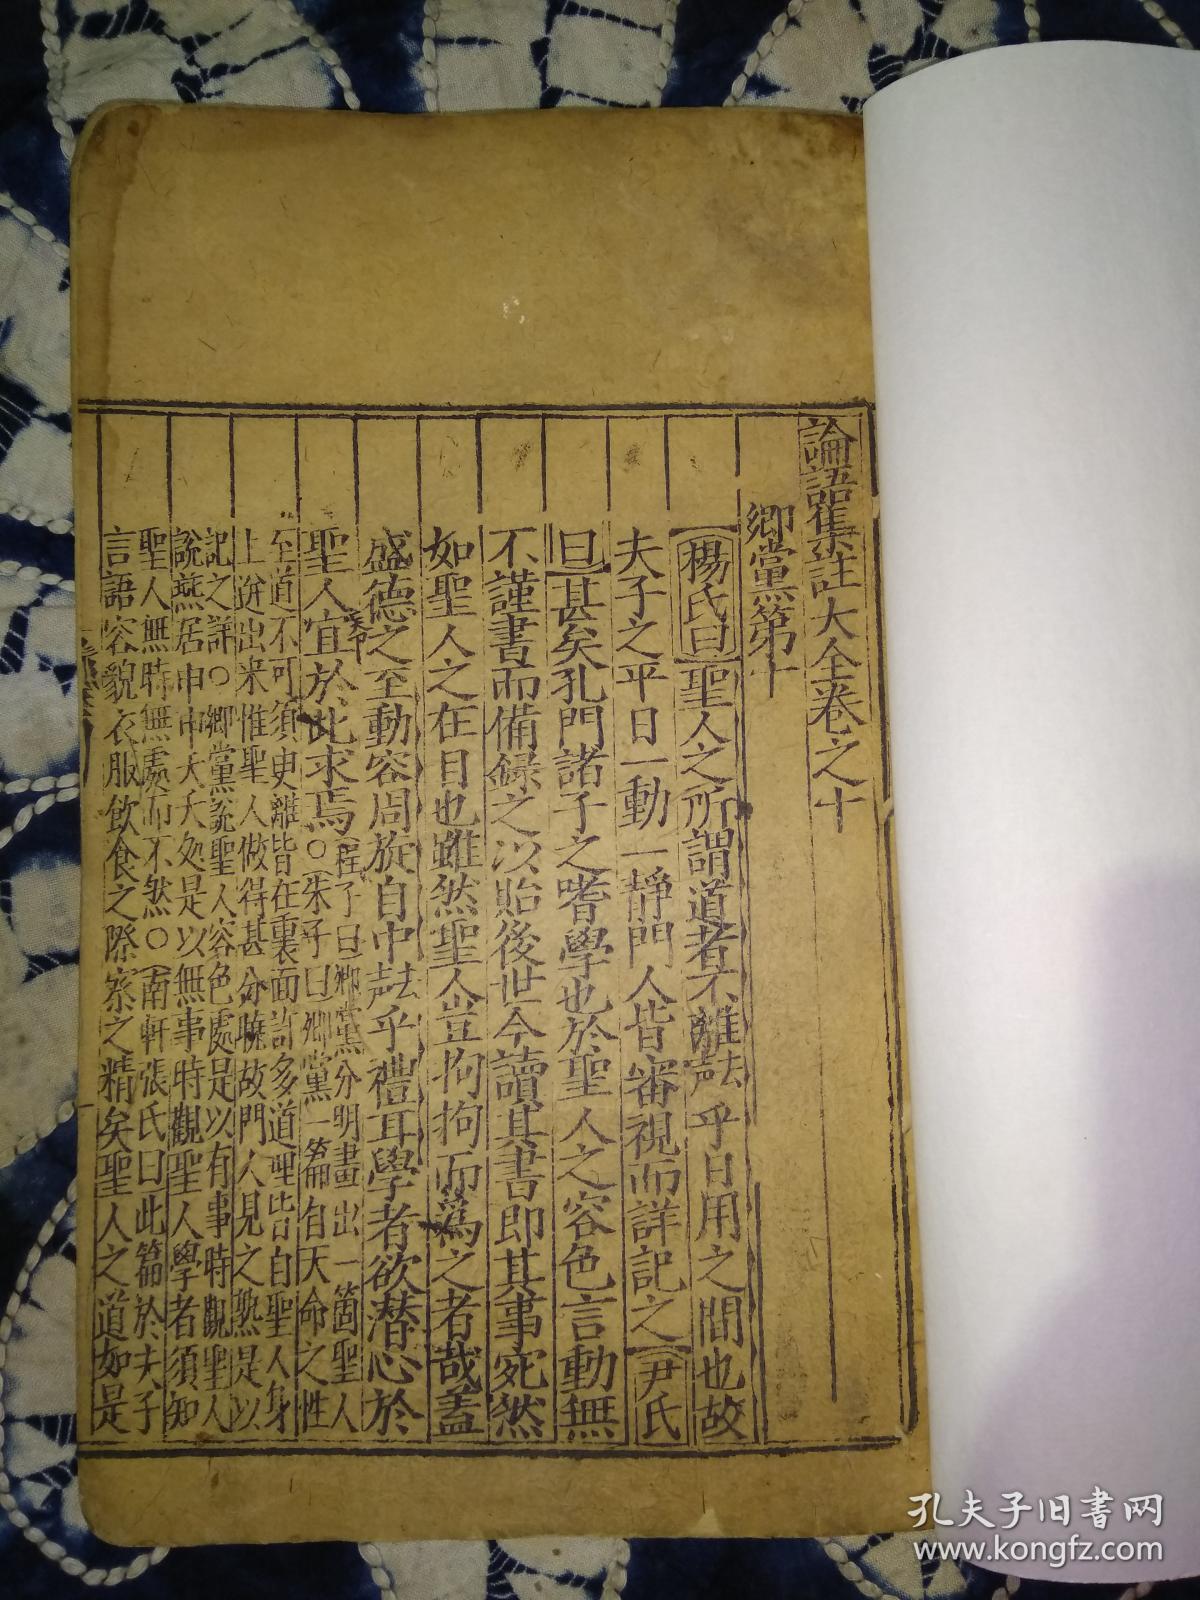 論語集註大全卷之十
鄉黨第十
楊氏曰聖人之所謂道者不離去聲乎日用之間也故
夫子之平日一動一靜門人皆審視而詳記之尹氏
曰甚矣孔門諸子之嗜學也於聖人之容色言動無
不謹書而備錄之以貽後世今讀其書即其事宛然
如聖人之在目也雖然聖人豈拘拘而為之者哉蓋
盛德之至動容周旋自中去聲乎禮耳學者欲潛心於
聖人宜於此求焉
程子曰鄉黨分明畫出一箇聖人
○朱子曰鄉黨一篇自天命之性
至道不可須臾離皆在裏面許多道理皆自聖人身
上迸出来惟聖人做得甚分曉故門人見之熟是以
記之詳○鄉黨說聖人容色處是以有事時觀聖人
說燕居申申夭夭処是以無事時觀聖人學者須知
聖人無時無處而不然○南軒張氏曰此篇於夫子
言語容貌衣服飲食之際察之精矣聖人之道如是
孔夫子旧书网
www.kongfz.com